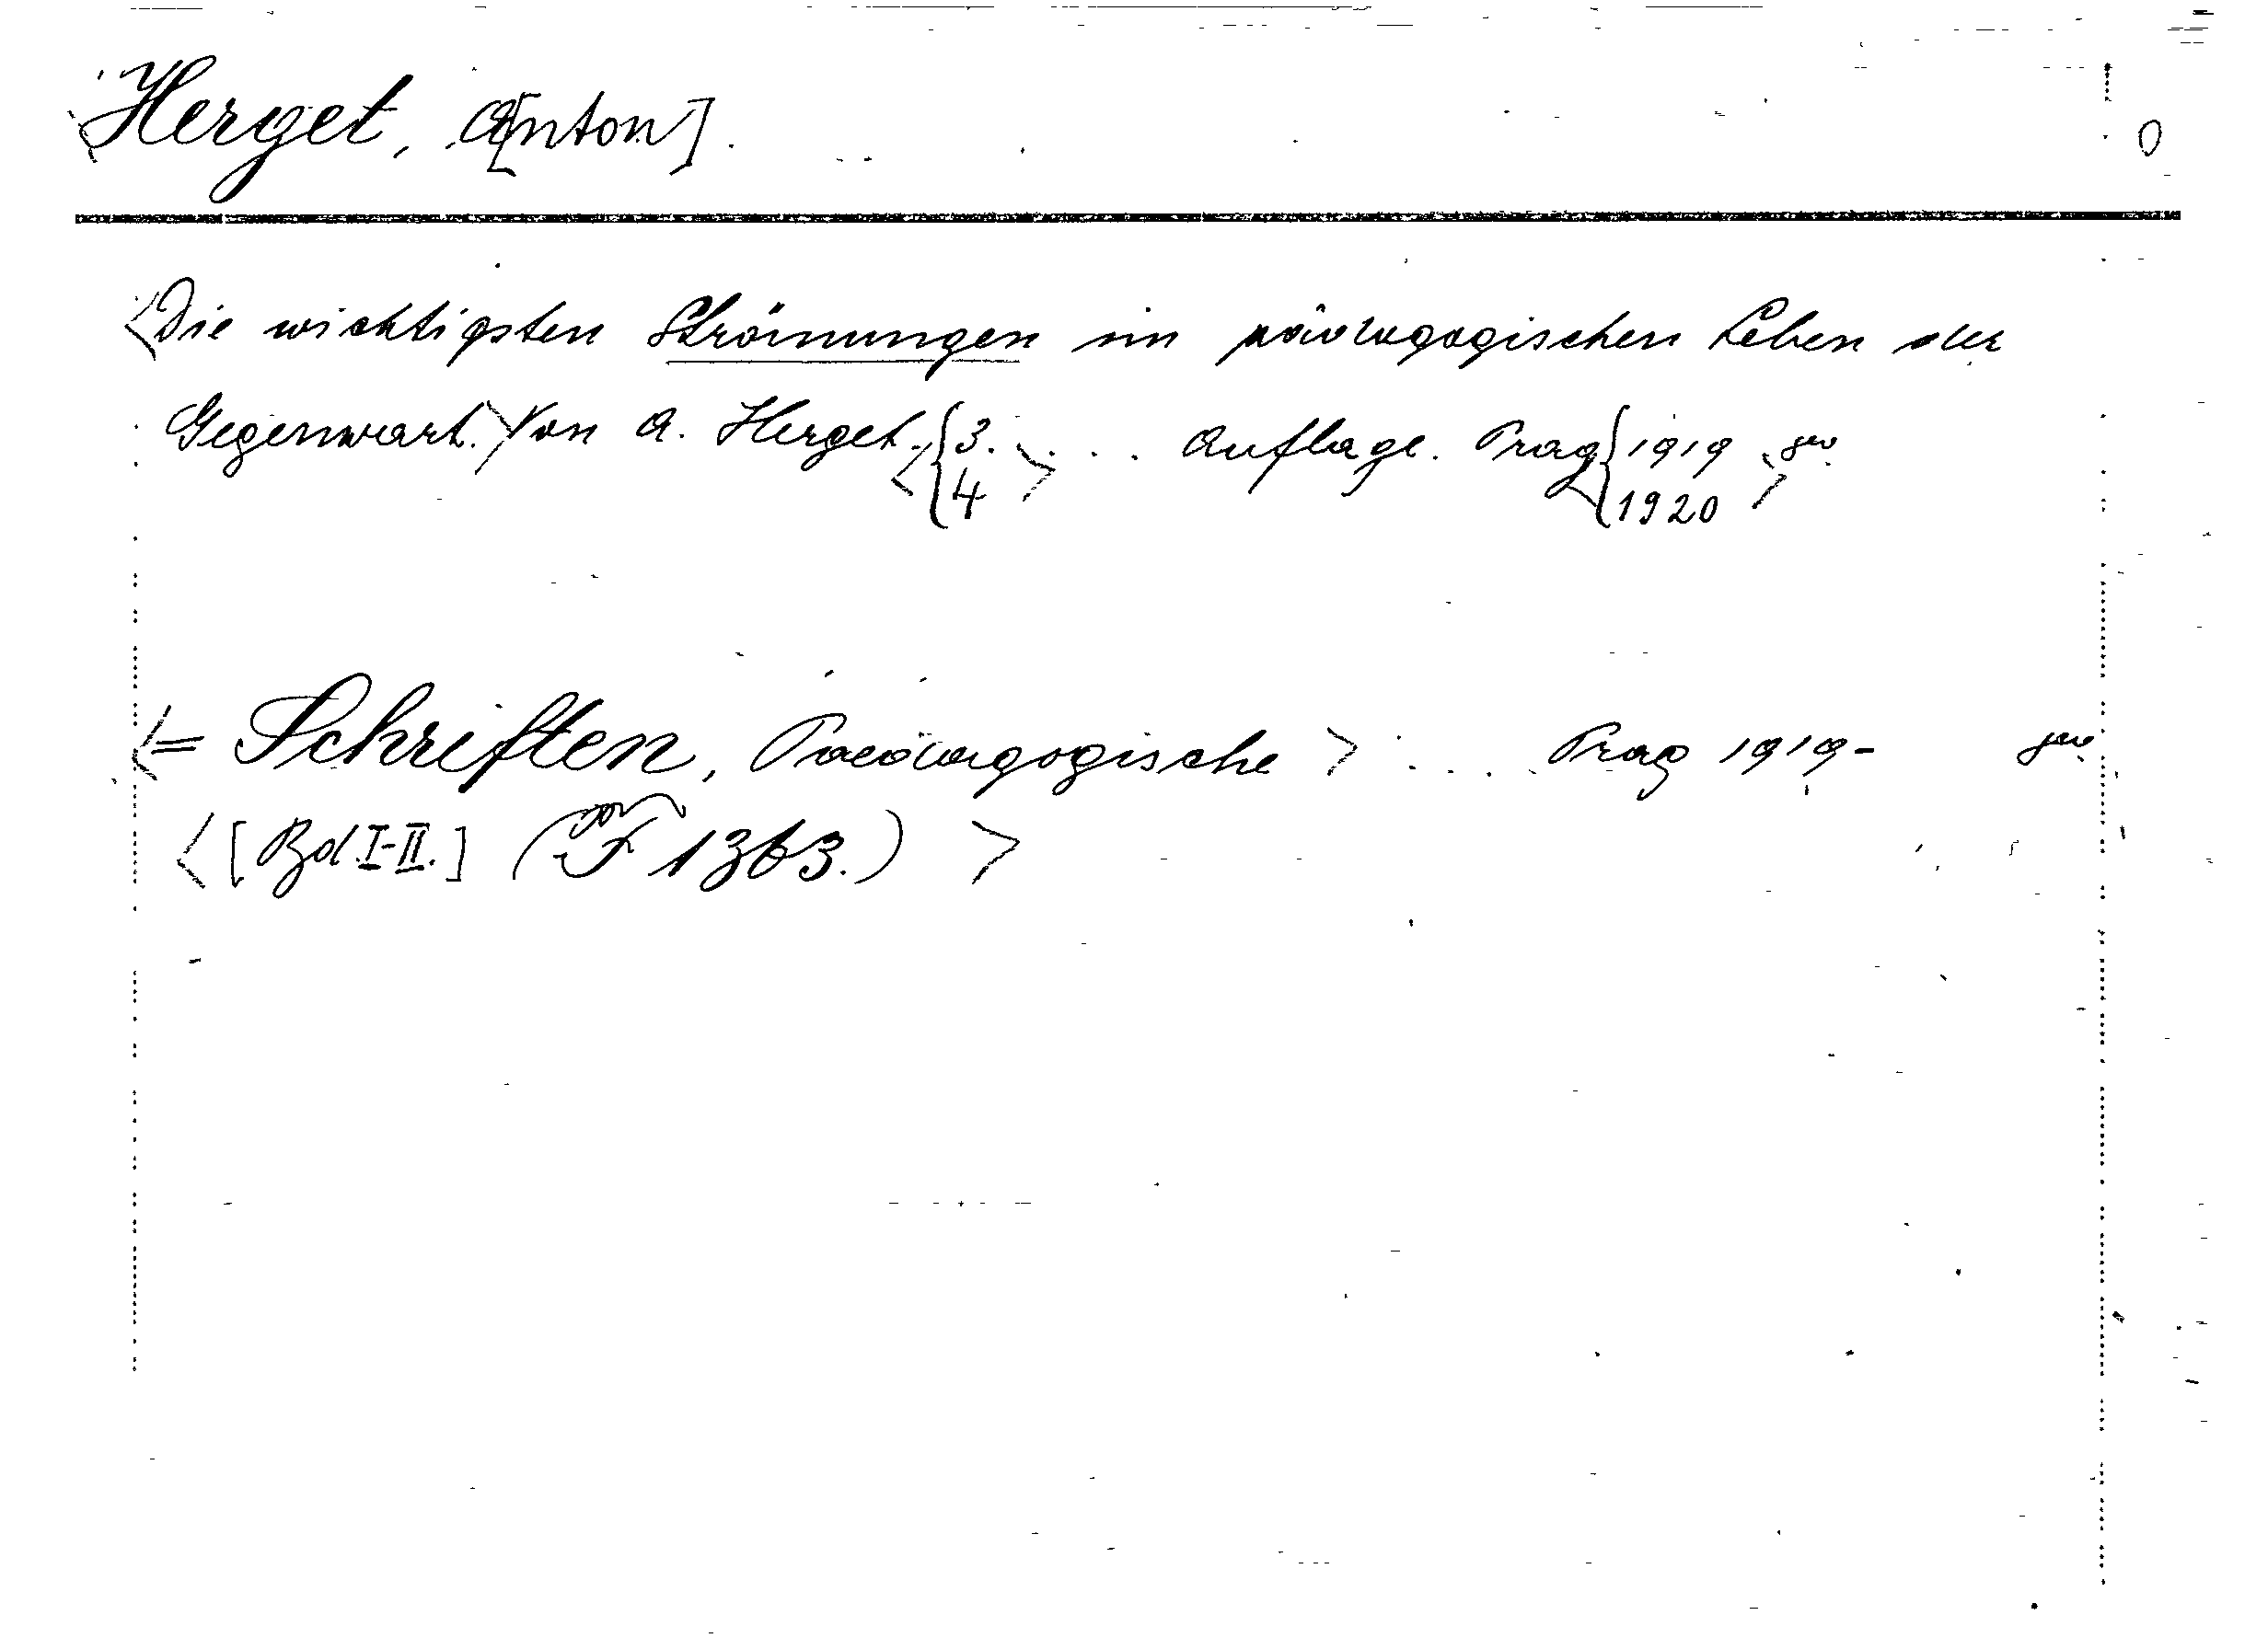 Herget, A[nton]. 0
<Die wichtigsten Strömungen im pädagogischen Leben der
Gegenwart.> Von A. Herget. <{3. > ... Auflage. Prag {1919 >
4 1920
<= Schriften, Paedagogische > .... Prag 1919-
<[Bd. I-II.] (F 1363.) >